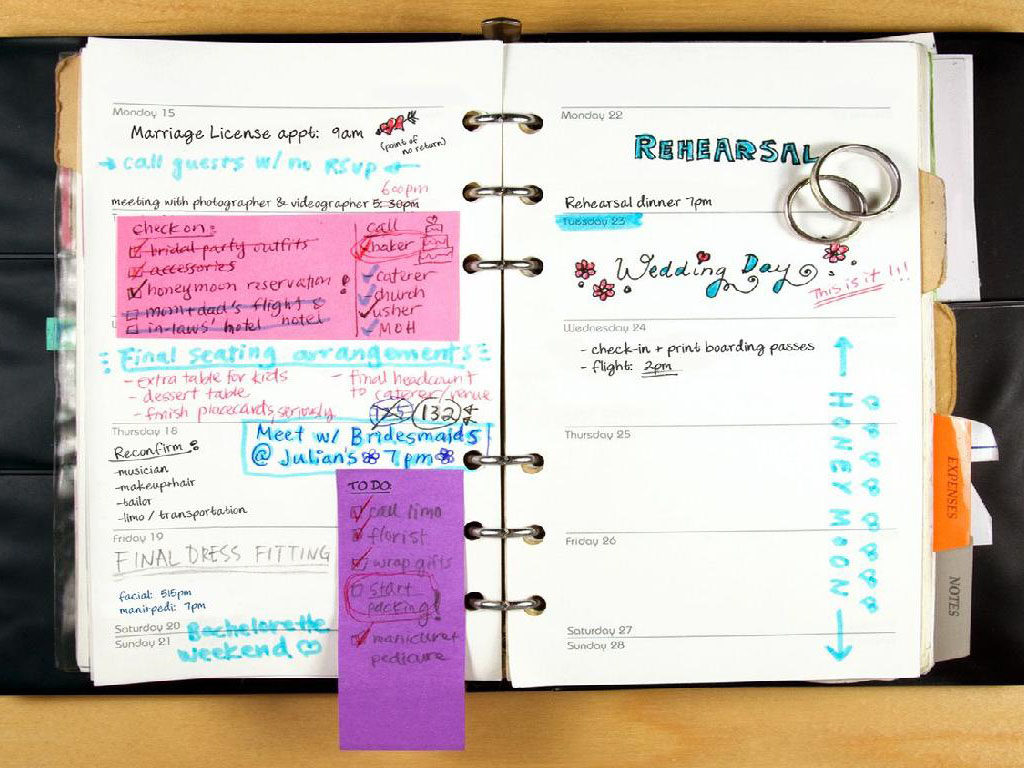 Monday 15
Marriage License appt: 9am
(point of no return)
call guests w/ no RSVP
600pm
meeting with photographer & videographer 5:30pm
check on:
bridal party outfits
accessories
honeymoon reservation!
mom+dad's flight &
in-laws hotel hotel
call
baker
caterer
church
usher
MOH
Final seating arrangements
- extra table for kids
- dessert table
- finish placecards, seriously
- final headcount
to caterer/venue
125 132
Thursday 18
Reconfirm:
-musician
-makeup+hair
-tailor
-limo / transportation
Meet w/ Bridesmaids
@ Julian's 7pm
Friday 19
FINAL DRESS FITTING
facial: 515pm
mani+pedi: 7pm
Saturday 20
Sunday 21
Bachelorette
weekend
TO DO:
call limo
florist
wrap gifts
start
packing!
manicure+
pedicure
Monday 22
REHEARSAL
Rehearsal dinner 7pm
Tuesday 23
Wedding Day
This is it!!!
Wednesday 24
- check-in + print boarding passes
- flight: 2pm
Thursday 25
Friday 26
Saturday 27
Sunday 28
HONEY MOON
EXPENSES
NOTES